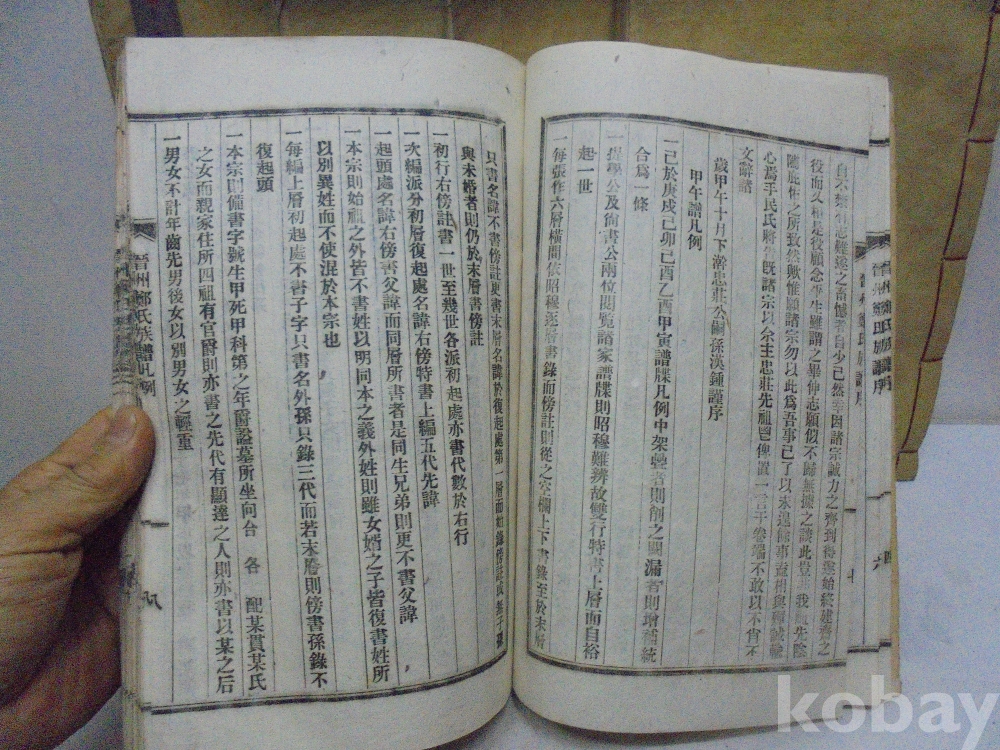 役而久稽是役顧念平生難謂之畢伸志願似不歸無據之談此豈非我祖先陰
隲庇佑之所致然歟惟願諸宗勿以此爲吾事已了以未遑餘事
心爲乎氏氏將
文辭諸
歲甲午十月下澣忠莊公嗣孫漢鍾謹序
甲午譜凡例
一己於庚戌己卯己酉乙酉甲寅譜牒凡例中架疊者則削之闕漏者則增補統
合爲一條
一提學公及尙書公兩位閱覽諸家譜牒則昭穆難辨故雙行特書上層而自裕
起一世
一每張作六層橫間依昭穆逐層書錄而傍註則從之空欄上下書錄至於末層
只書名諱不書傍註更書末層名諱於復起處第一層而始錄傍註或無子孫
與未婚者則仍於末層書傍註
一初行右傍註書一世至幾世各派初起處亦書代數於右行
一次編派分初層復起處名諱右傍特書上編五代先諱
一起頭處名諱右傍書父諱而同層所書者是同生兄弟則更不書父諱
一本宗則始祖之外皆不書姓以明同本之義外姓則雖女婿之子皆復書姓所
以別異姓而不使混於本宗也
一每編上層初起處不書子字只書名外孫只錄三代而若末層則傍書孫錄不
復起頭
一本宗則備書字號生甲死甲科第之年爵諡墓所坐向合各配某貫某氏
之女而親家住所四祖有官爵則亦書之先代有顯達之人則亦書以某之后
一男女不計年齒先男後女以別男女之輕重
晉州鄭氏族譜凡例
八
晉州鄭氏族譜序
kobay